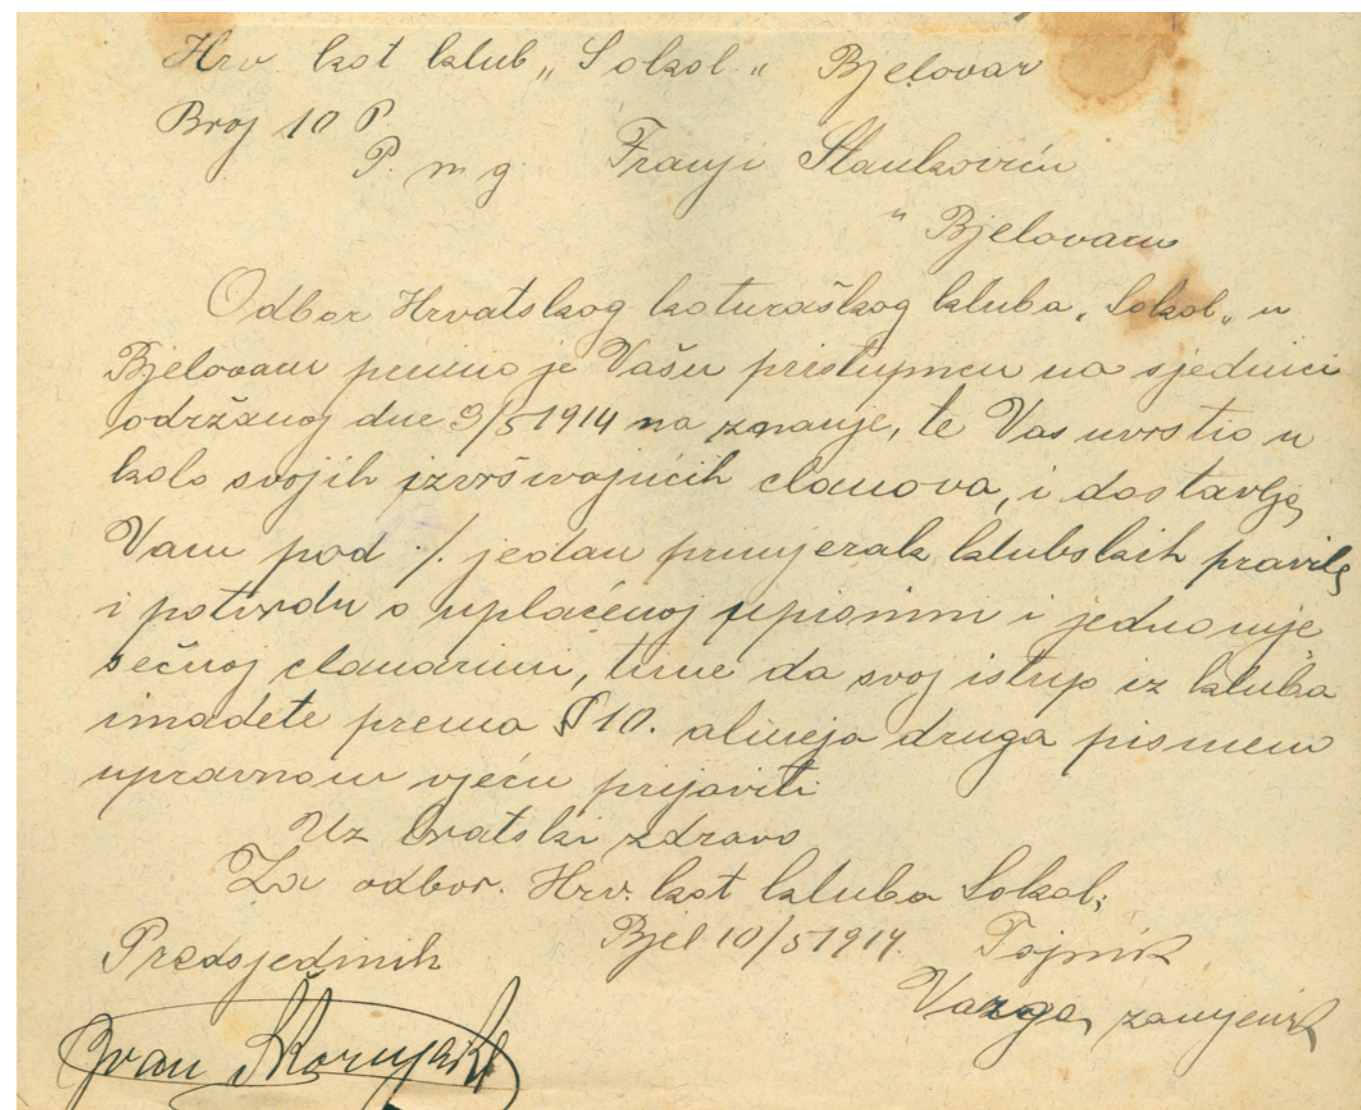 Hrv kot klub „Sokol" Bjelovar
Broj 10 P.
P. n. g. Franji Stankoviću
u Bjelovaru
Odbor Hrvatskog koturaškog kluba „Sokol" u
Bjelovaru primio je Vašu pristupnicu na sjednici
održanoj dne 9/5 1914 na znanje, te Vas uvrstio u
kolo svojih izvršivajućih clanova, i dostavlja
Vam pod ./. jedan primjerak klubskih pravila
i potvrdu o uplaćenoj upisnini i jednomje-
sečnoj clanarini, time da svoj istup iz kluba
imadete prema § 10. alineja druga pismeno
upravnom vjeću prijaviti
Uz bratski zdravo
Za odbor. Hrv. kot kluba Sokol;
Bjel 10/5 1914.
Predsjednik
Tajnik
Varga, zamjenik
Ivan